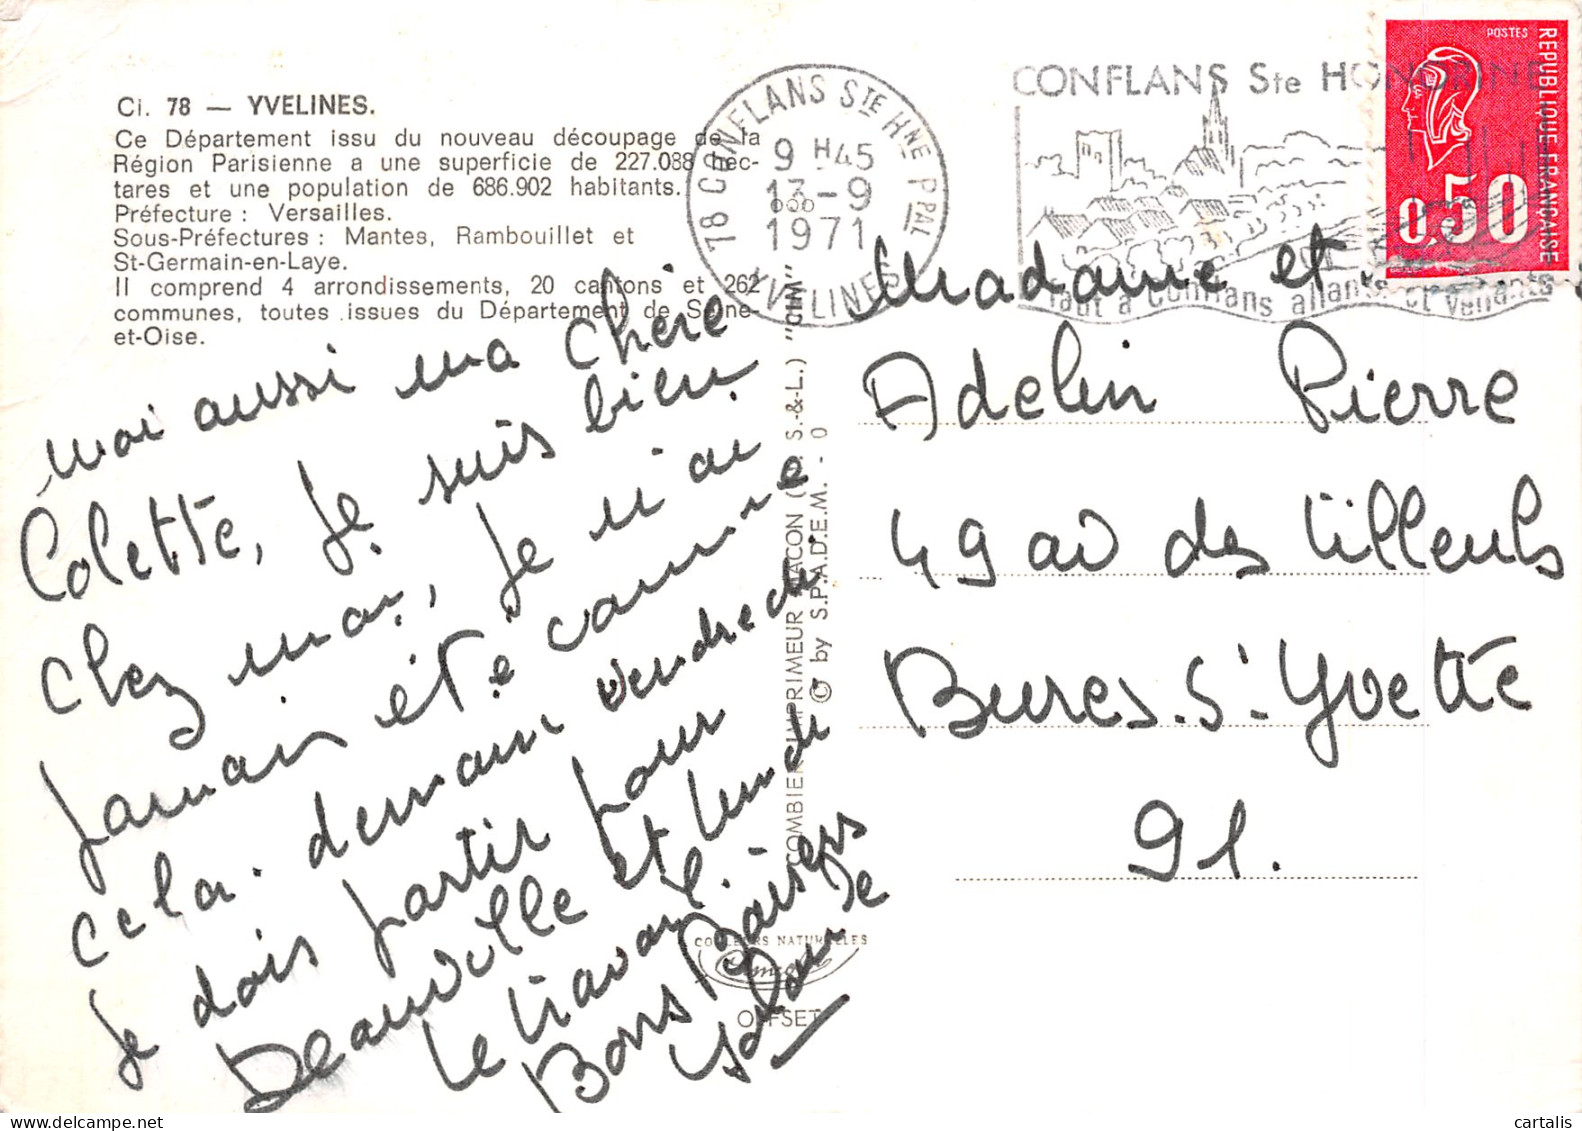 Ci. 78 — YVELINES.
Ce Département issu du nouveau découpage de la
Région Parisienne a une superficie de 227.088 hec-
tares et une population de 686.902 habitants.
Préfecture : Versailles.
Sous-Préfectures : Mantes, Rambouillet et
St-Germain-en-Laye.
Il comprend 4 arrondissements, 20 cantons et 262
communes, toutes issues du Département de Seine-
et-Oise.
moi aussi ma chère
Colette, je suis bien
chez moi, je n'ai
jamais été comme
cela. demain vendredi
je dois partir pour
Deauville et lundi
le travail.
Bons Baisers
Yolande
78 CONFLANS STE HNE PPAL
9 H 45
13-9
1971
YVELINES
CONFLANS Ste HONORINE
faut à Conflans allants et venants
POSTES
REPUBLIQUE FRANÇAISE
0,50
Madame et
Adelin Pierre
49 av des tilleuls
Bures. S. Yvette
91.
COMBIER IMPRIMEUR MACON (S.-&-L.) "CIM"
© by S.P.A.D.E.M. - 0
COULEURS NATURELLES
OFFSET
cartalis